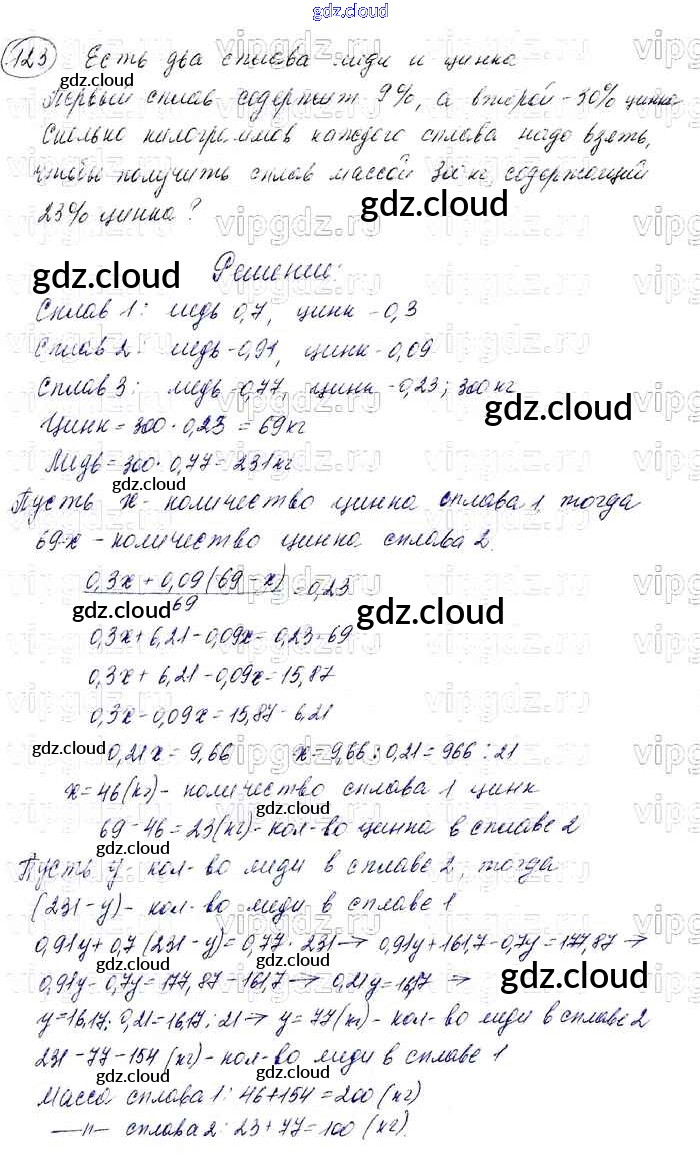 gdz.cloud
123 Есть два сплава меди и цинка
gdz.cloud
Первый сплав содержит 9%, а второй - 30% цинка
Сколько килограммов каждого сплава надо взять,
чтобы получить сплав массой 300 кг, содержащий
gdz.cloud
23% цинка?
gdz.cloud
Решение:
Сплав 1: медь 0,7, цинк - 0,3
Сплав 2: медь - 0,91, цинк - 0,09
Сплав 3: медь - 0,77, цинк - 0,23; 300 кг
gdz.cloud
Цинк = 300 · 0,23 = 69 кг
Медь = 300 · 0,77 = 231 кг
Пусть x - количество цинка сплава 1, тогда
69-x - количество цинка сплава 2.
0,3x + 0,09(69 - x) = 0,23
69
gdz.cloud
gdz.cloud
0,3x + 6,21 - 0,09x = 0,23 · 69
0,3x + 6,21 - 0,09x = 15,87
0,3x - 0,09x = 15,87 - 6,21
gdz.cloud
gdz.cloud
0,21x = 9,66 x = 9,66 : 0,21 = 966 : 21
x = 46 (кг) - количество сплава 1 цинк
gdz.cloud
69 - 46 = 23 (кг) - кол-во цинка в сплаве 2
gdz.cloud
Пусть y - кол-во меди в сплаве 2, тогда
(231 - y) - кол-во меди в сплаве 1
0,91y + 0,7(231 - y) = 0,77 · 231 → 0,91y + 161,7 - 0,7y = 177,87 →
gdz.cloud
gdz.cloud
0,91y - 0,7y = 177,87 - 161,7 → 0,21y = 16,17 →
y = 16,17 : 0,21 = 16,17 : 21 → y = 77 (кг) - кол-во меди в сплаве 2
231 - 77 - 154 (кг) - кол-во меди в сплаве 1
gdz.cloud
gdz.cloud
Масса сплава 1: 46 + 154 = 200 (кг)
—"— сплава 2: 23 + 77 = 100 (кг).